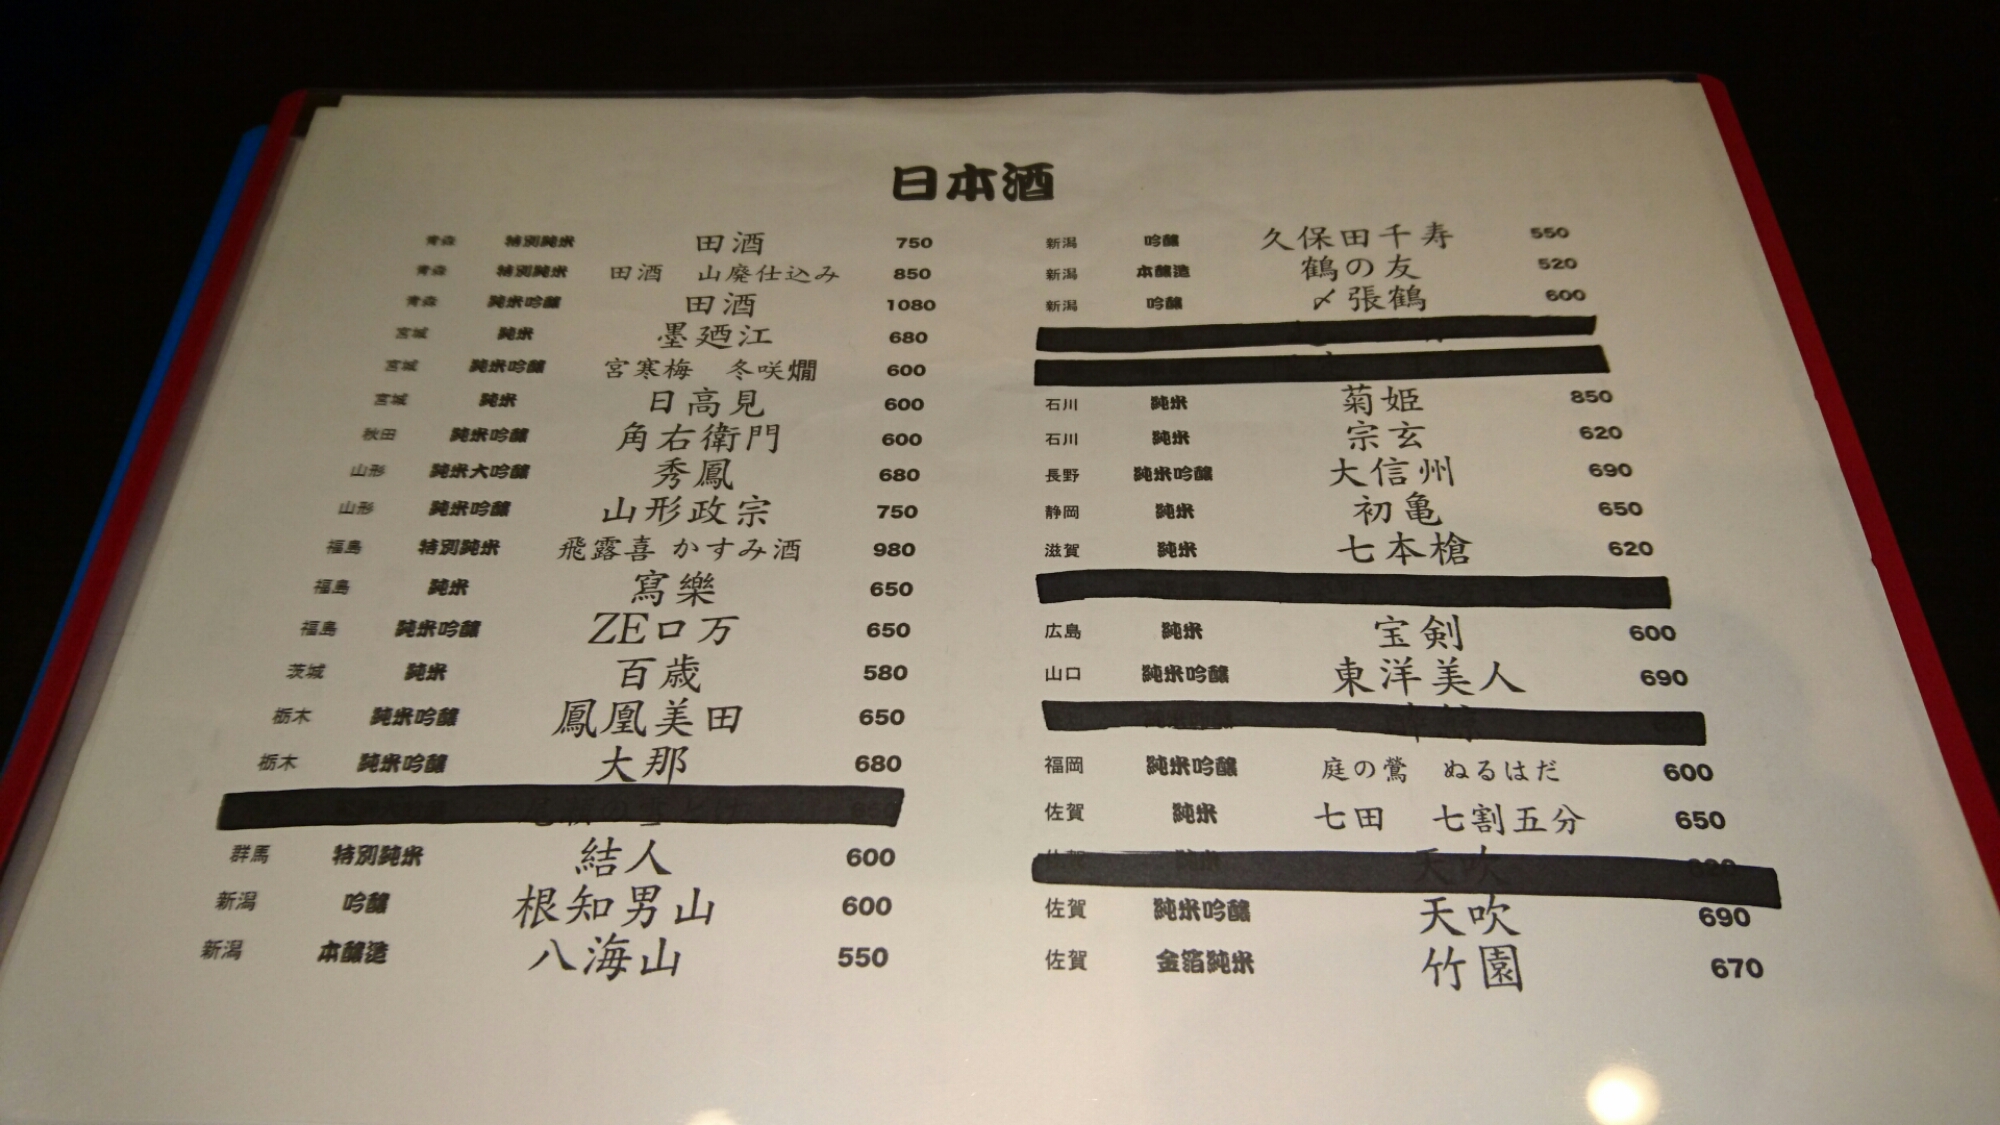 日本酒
青森 特別純米 田酒 750
青森 特別純米 田酒 山廃仕込み 850
青森 純米吟醸 田酒 1080
宮城 純米 墨廼江 680
宮城 純米吟醸 宮寒梅 冬咲燗 600
宮城 純米 日高見 600
秋田 純米吟醸 角右衛門 600
山形 純米大吟醸 秀鳳 680
山形 純米吟醸 山形政宗 750
福島 特別純米 飛露喜 かすみ酒 980
福島 純米 寫樂 650
福島 純米吟醸 ZEロ万 650
茨城 純米 百歳 580
栃木 純米吟醸 鳳凰美田 650
栃木 純米吟醸 大那 680
群馬 特別純米 結人 600
新潟 吟醸 根知男山 600
新潟 本醸造 八海山 550
新潟 吟醸 久保田千寿 550
新潟 本醸造 鶴の友 520
新潟 吟醸 〆張鶴 600
石川 純米 菊姫 850
石川 純米 宗玄 620
長野 純米吟醸 大信州 690
静岡 純米 初亀 650
滋賀 純米 七本槍 620
広島 純米 宝剣 600
山口 純米吟醸 東洋美人 690
福岡 純米吟醸 庭の鶯 ぬるはだ 600
佐賀 純米 七田 七割五分 650
佐賀 純米 天吹
佐賀 純米吟醸 天吹 690
佐賀 金箔純米 竹園 670